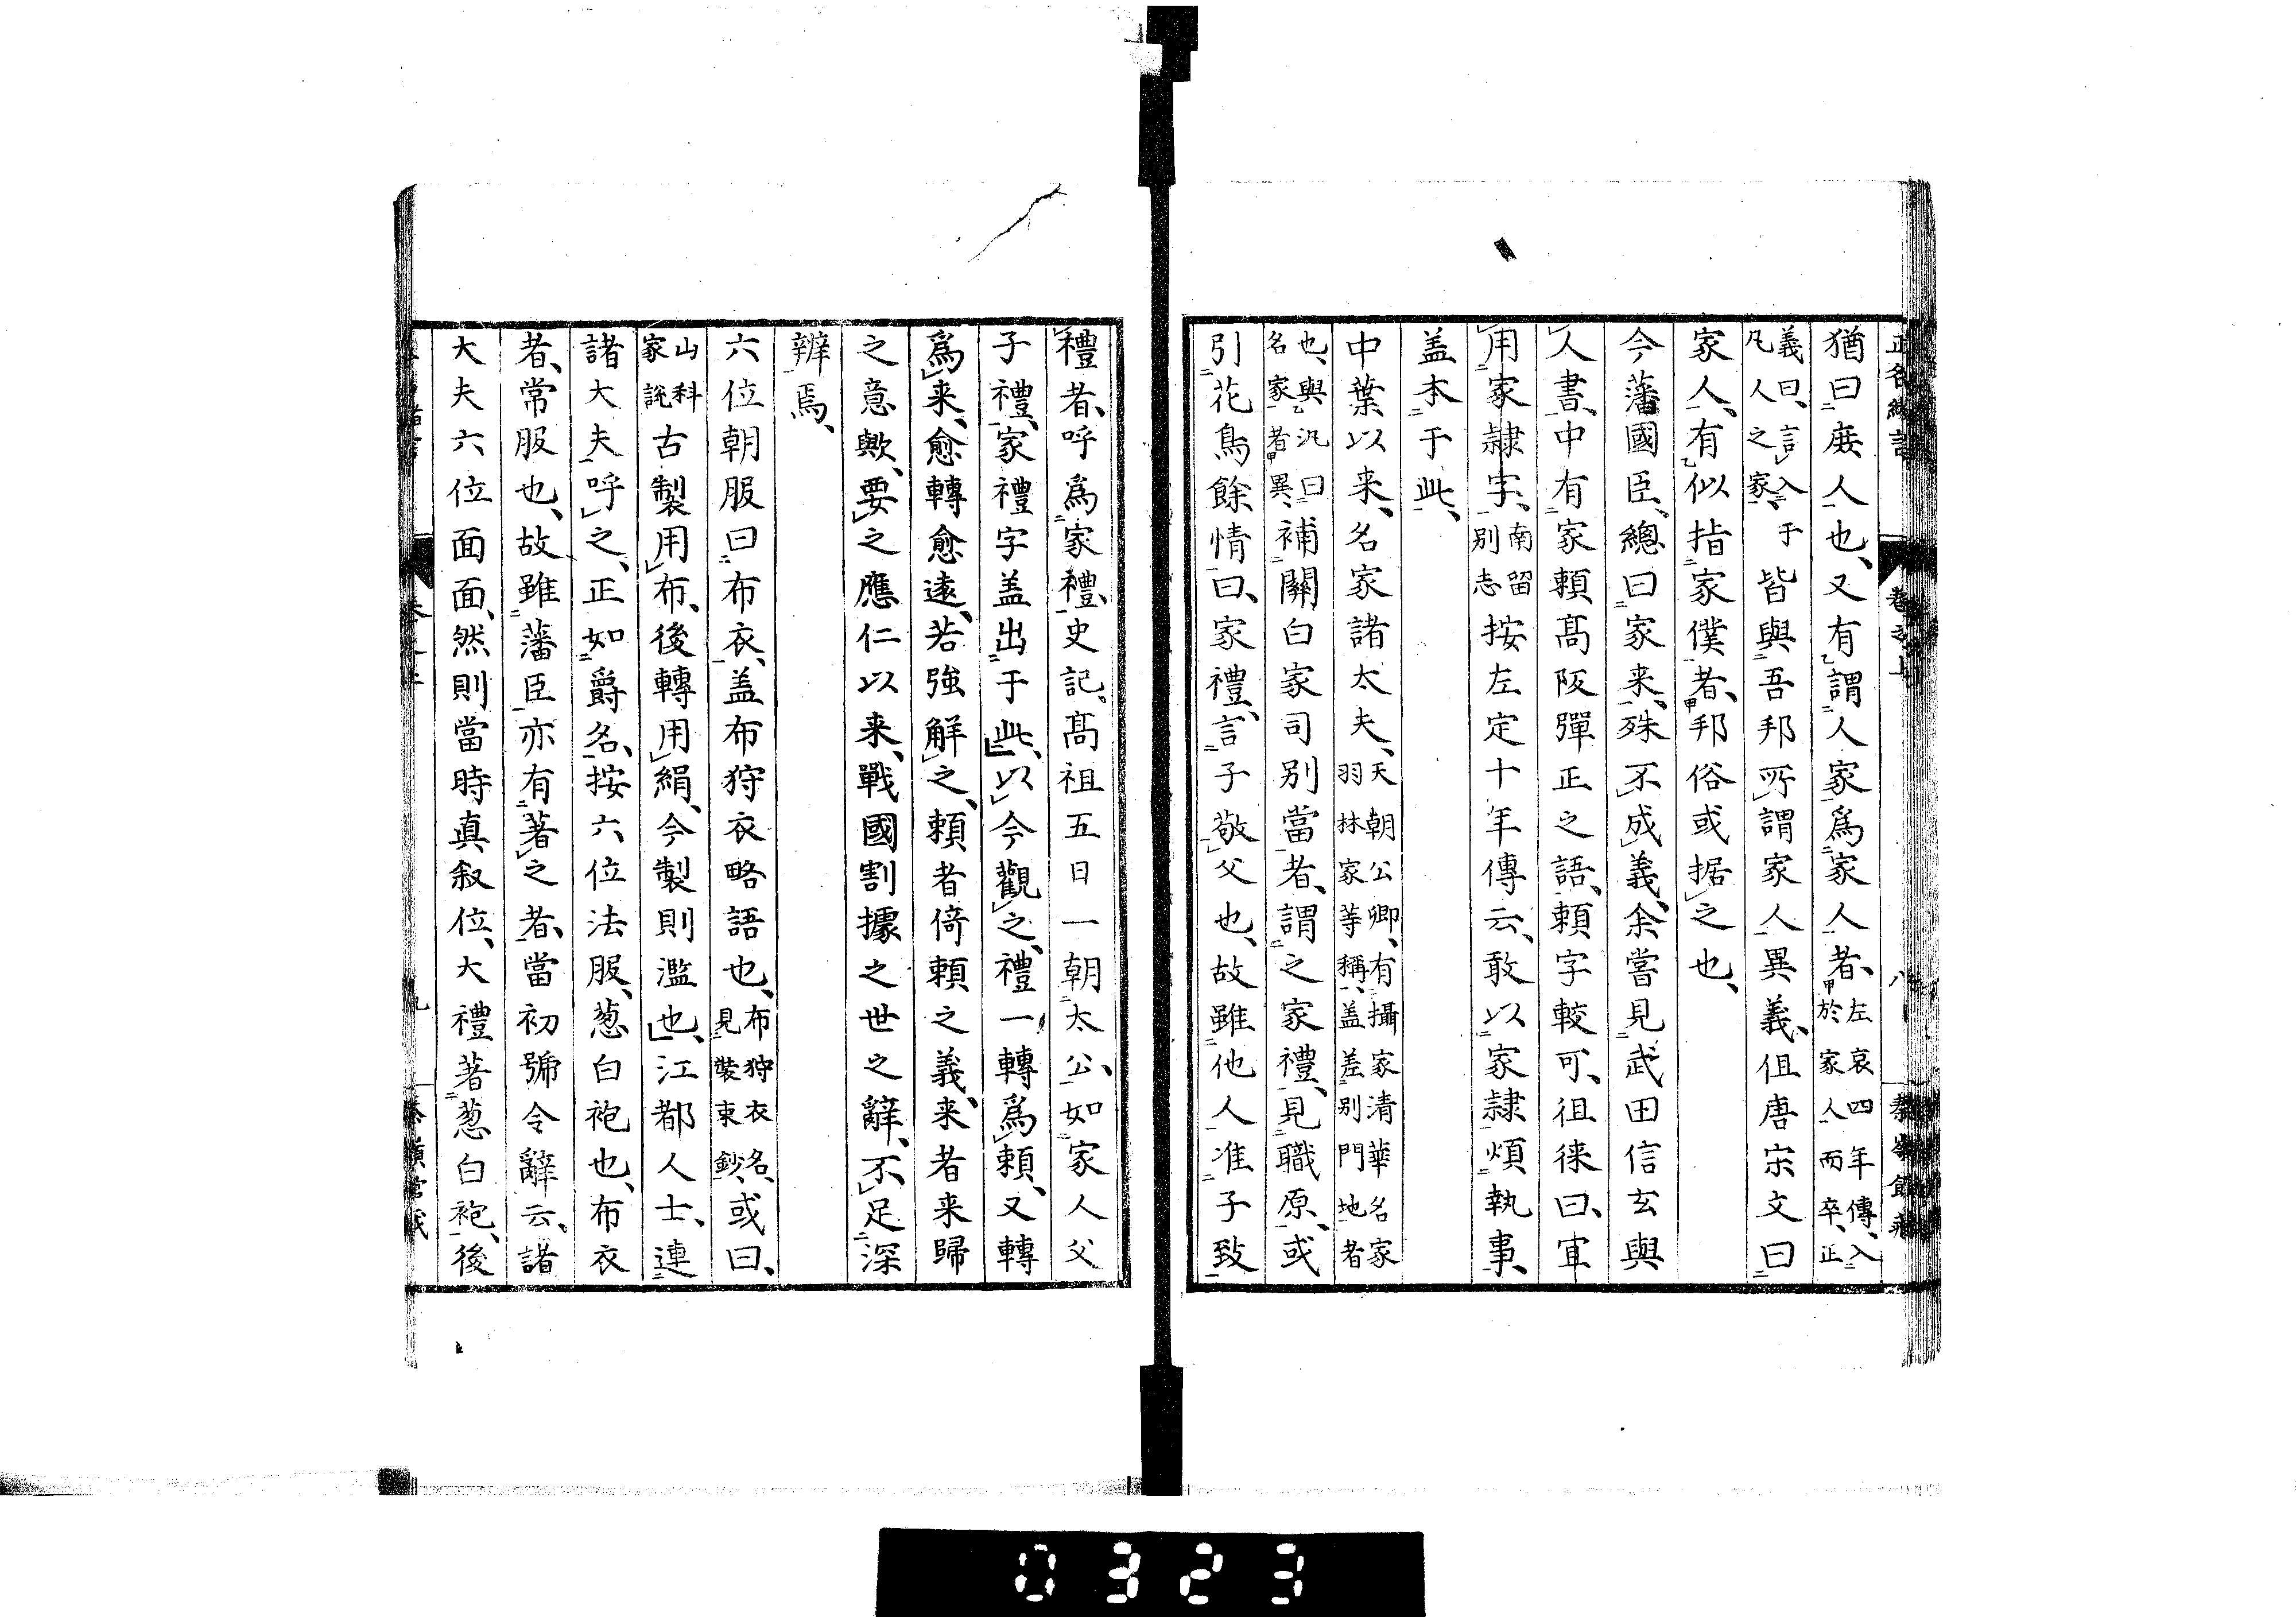 猶曰庶人也、又有謂人家爲家人者、左哀四年傳、入於家人而卒、正
義曰、言入于凡人之家、皆與吾邦所謂家人異義、但唐宋文曰
家人、有似指家僕者、邦俗或据之也、
今藩國臣、總曰家来、殊不成義、余嘗見武田信玄與
人書、中有家頼髙阪彈正之語、頼字較可、徂徠曰、宜
用家隷字、南留別志按左定十年傳云、敢以家隷煩執事、
盖本于此、
中葉以来、名家諸太夫、天朝公卿、有攝家清華名家羽林家等稱、盖差別門地者
也、與汎曰名家者異、補關白家司別當者、謂之家禮、見職原、或
引花鳥餘情曰、家禮、言子敬父也、故雖他人准子致
禮者、呼爲家禮、史記、髙祖五日一朝太公、如家人父
子禮、家禮字盖出于此、以今觀之、禮一轉爲頼、又轉
爲来、愈轉愈遠、若強解之、頼者倚頼之義、来者来歸
之意歟、要之應仁以来、戰國割據之世之辭、不足深
辨焉、
六位朝服曰布衣、盖布狩衣略語也、布狩衣名、見裝束鈔、或曰、
山科家説古製用布、後轉用絹、今製則濫也、江都人士、連
諸大夫呼之、正如爵名、按六位法服、葱白袍也、布衣
者、常服也、故雖藩臣亦有著之者、當初號令辭云、諸
大夫六位面面、然則當時真叙位、大禮著葱白袍、後
0323